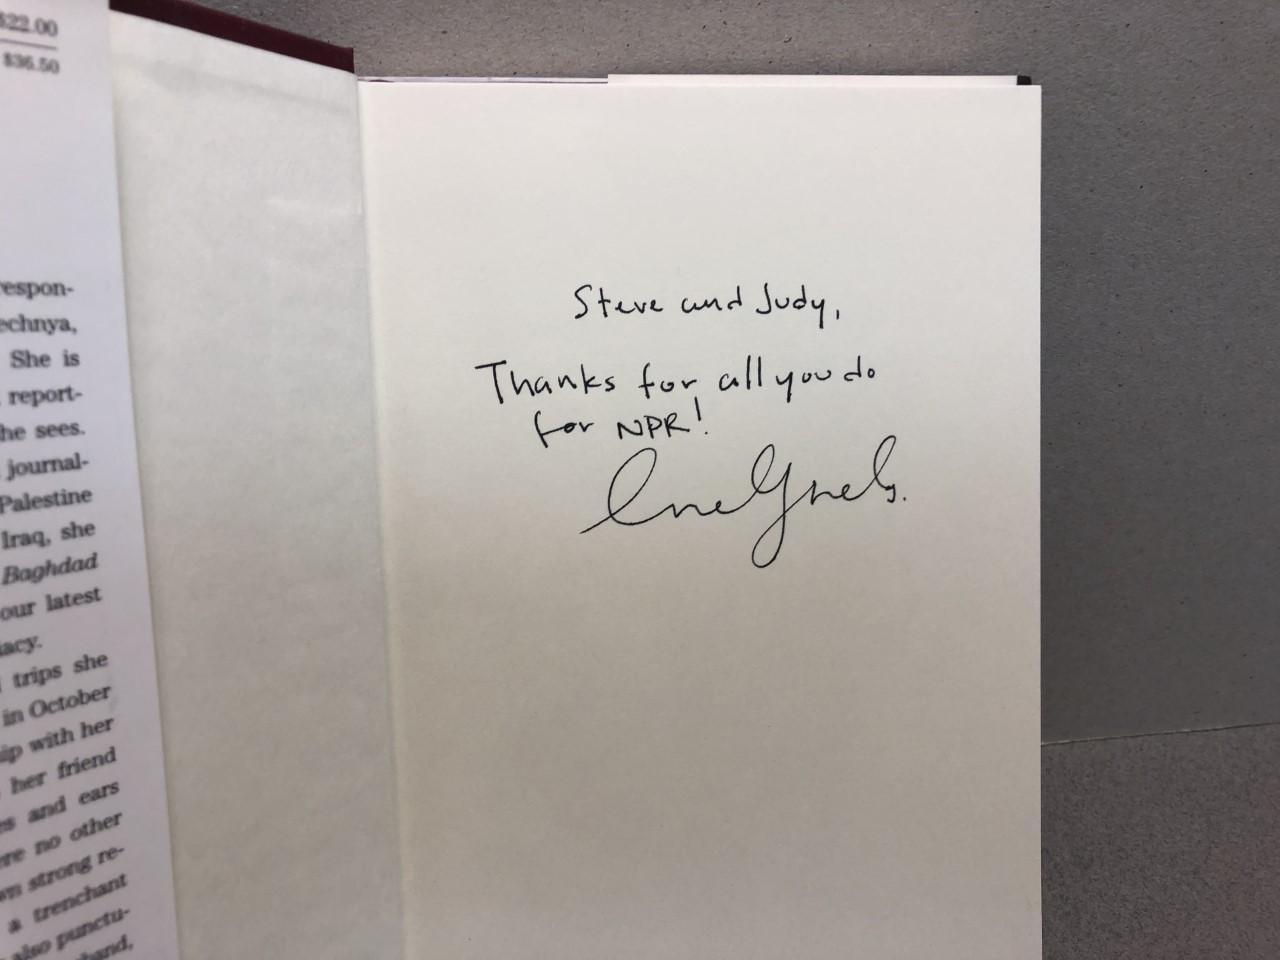 $22.00
$36.50
respon-
echnya,
She is
report-
he sees.
journal-
Palestine
Iraq, she
Baghdad
our latest
iacy.
trips she
in October
ip with her
her friend
es and ears
ere no other
wn strong re-
a trenchant
also punctu-
band,
Steve and Judy,
Thanks for all you do
for NPR!